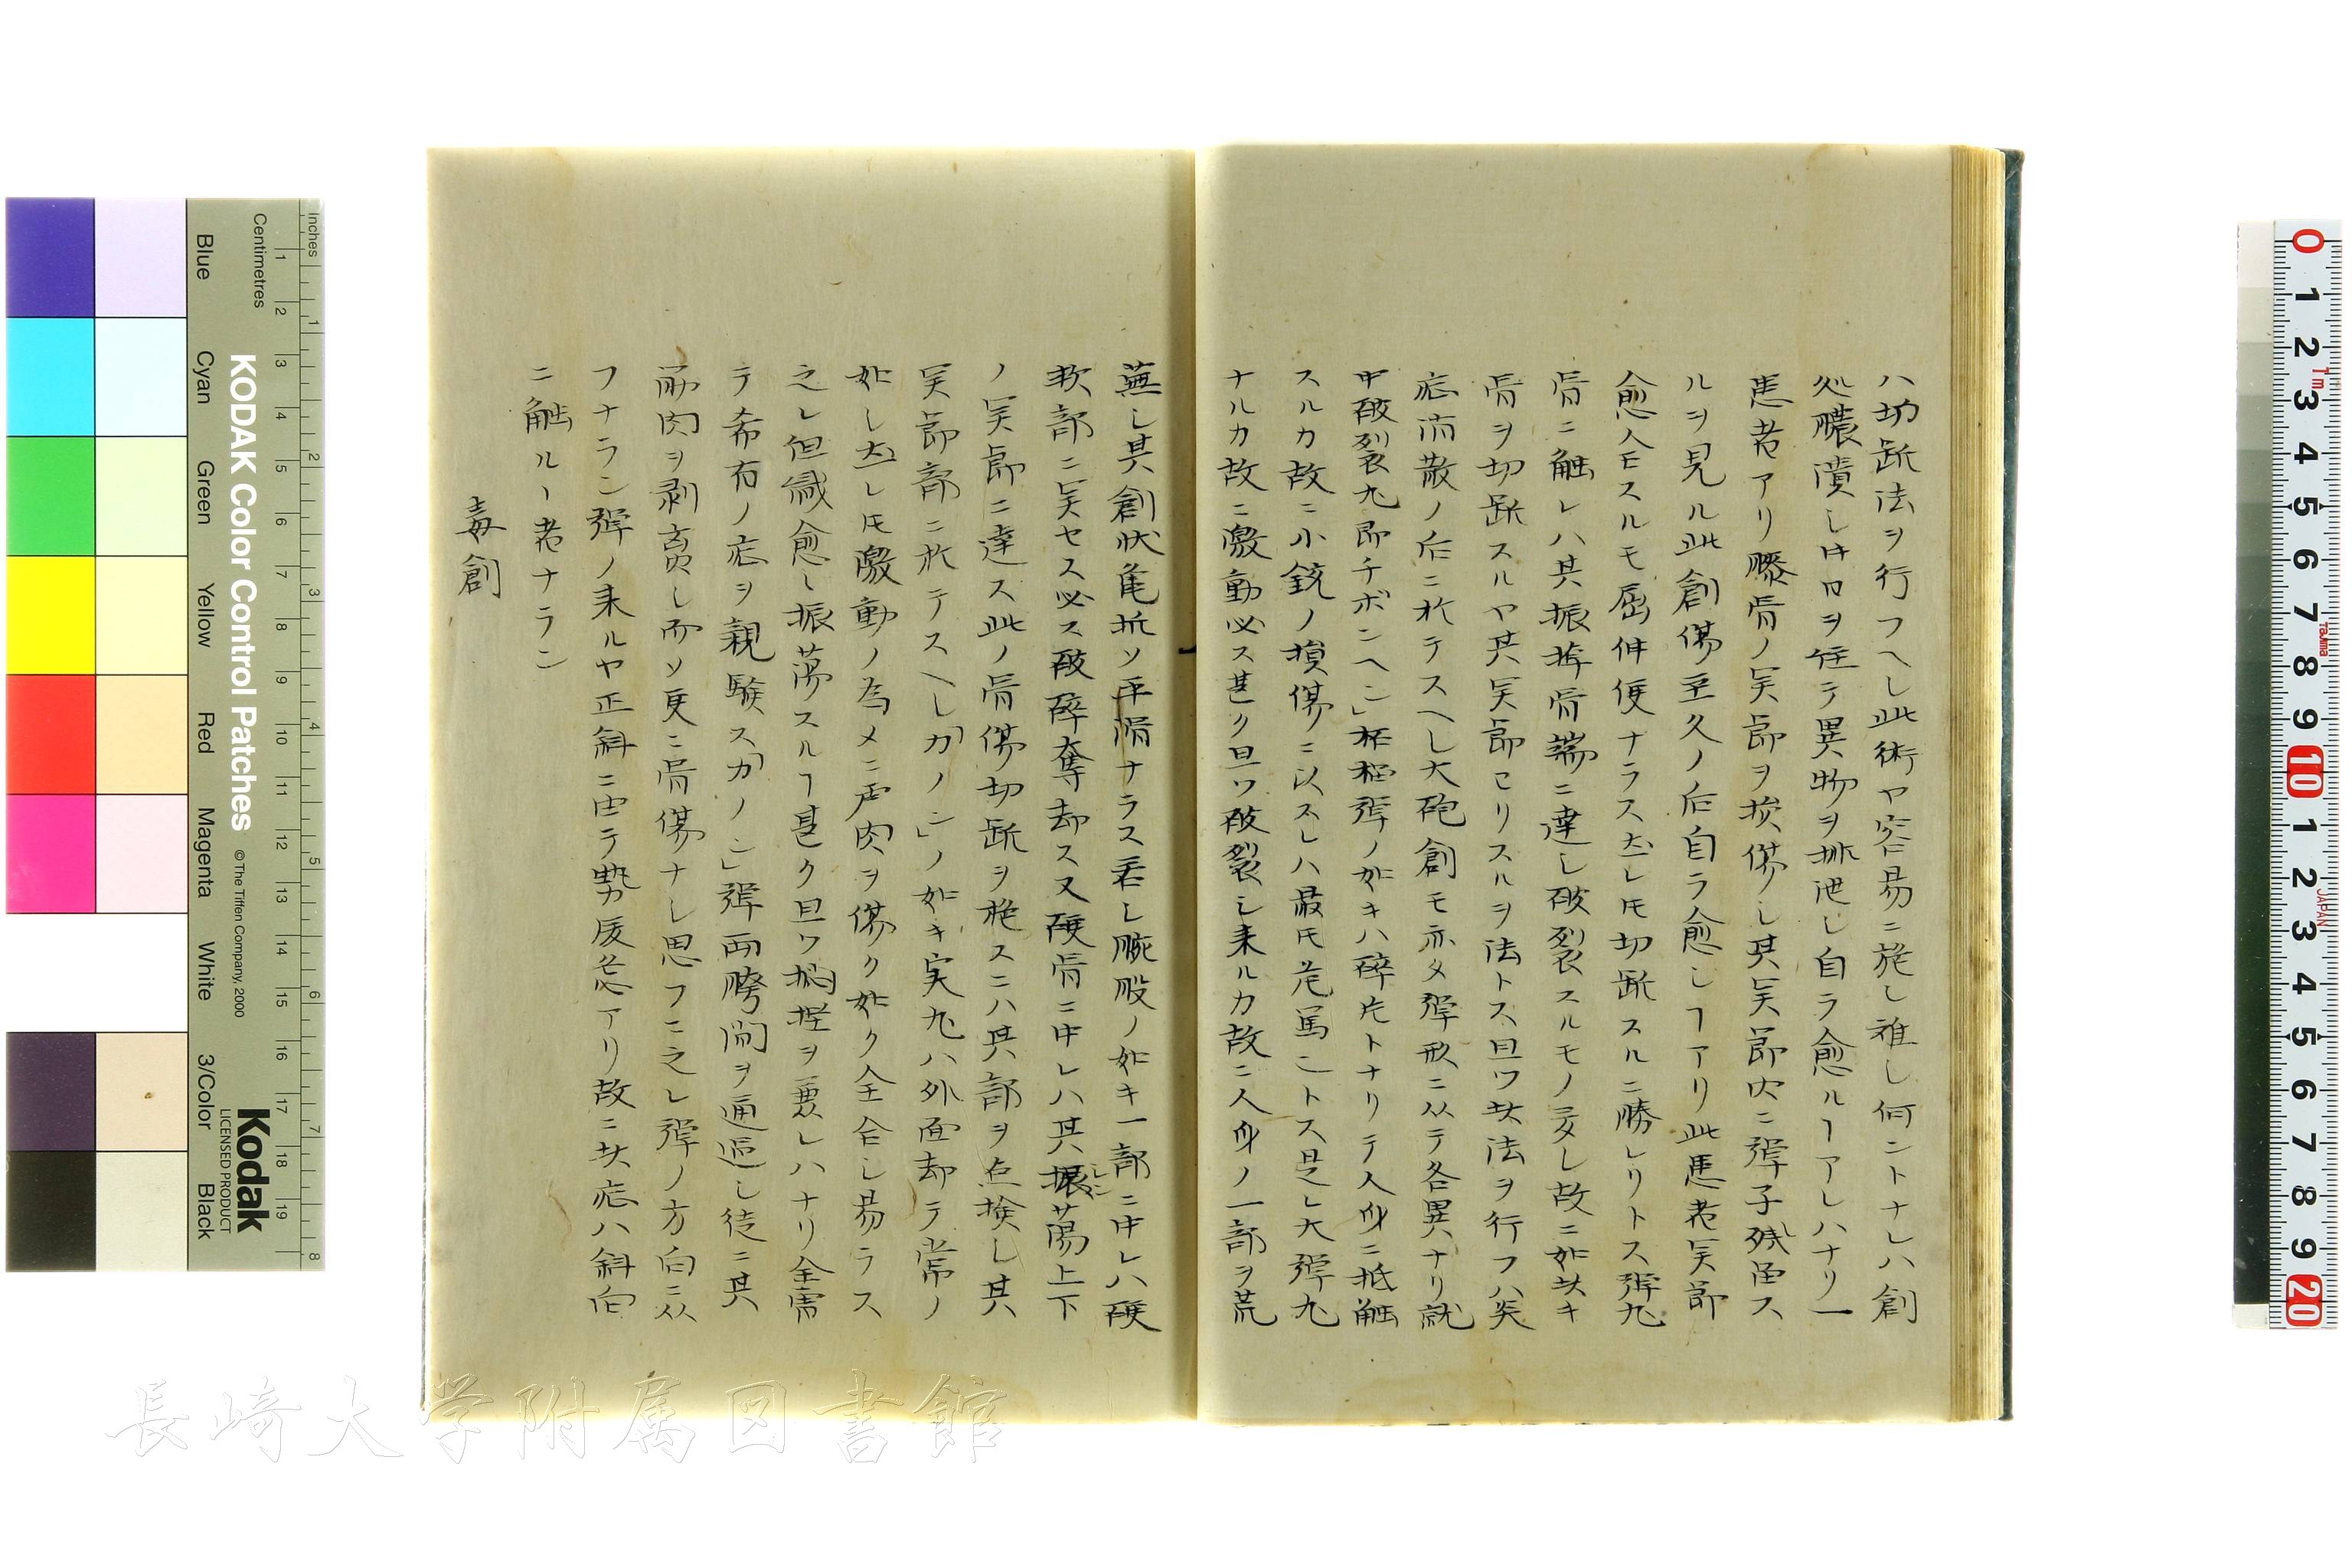 ハ切断法ヲ行フヘシ此術ヤ容易ニ施シ難シ何ントナレハ創
処膿潰シ口ヲ任テ異物ヲ排泄シ自ラ愈ルヿアレハナリ一
患者アリ膝骨ノ関節ヲ挨傷シ其関節内ニ弾子残留ス
ルヲ見ル此創傷至久ノ后自ラ愈シヿアリ此患者関節
愈合スルモ屈伸便ナラス然レ𪜈切断スルニ勝レリトス弾丸
骨ニ触レハ其振掉骨端ニ達シ破裂スルモノ多シ故ニ如此キ
骨ヲ切断スルヤ其関節ヨリスルヲ法トス且ツ此法ヲ行フハ炎
症消散ノ后ニ於テスヘシ大砲創モ亦タ弾形ニ従テ各異ナリ就
中破裂丸即チボンヘン」柘榴弾ノ如キハ碎片トナリテ人身ニ抵触
スルカ故ニ小銃ノ損傷ニ以スレハ最𪜈危篤トス是レ大弾丸
ナルカ故ニ激動必ス甚ク且ツ破裂シ来ルカ故ニ人身ノ一部ヲ荒
蕪シ其創状亀折ソ平滑ナラス若シ腕股ノ如キ一部ニ中レハ硬
軟部ニ関セス必ス破碎奪却ス又硬骨ニ中レハ其振蕩上下
ノ関節ニ達ス此ノ骨傷切断ヲ施スニハ其部ヲ点検シ其
関節部ニ於テスヘシカノン」ノ如キ実丸ハ外面却テ常ノ
如シ然レ𪜈激動ノ為メニ骨肉ヲ傷ク如ク全合シ易ラス
之レ但緘愈シ振蕩スルヿ甚ク且ツ掴捏ヲ兼レハナリ全需
テ希有ノ症ヲ親験スカノン」弾両胯間ヲ通過シ徒ニ其
筋肉ヲ剥奪シ而ソ更ニ骨傷ナシ思フニ之レ弾ノ方向ニ从
フナラン弾ノ来ルヤ正斜ニ由テ勢緩急アリ故ニ此症ハ斜向
ニ触ルヽ者ナラン
毒創
Inches
Centimetres
KODAK Color Control Patches
©The Tiffen Company, 2000
Kodak
LICENSED PRODUCT
Blue
Cyan
Green
Yellow
Red
Magenta
White
3/Color
Black
長崎大学附属図書館